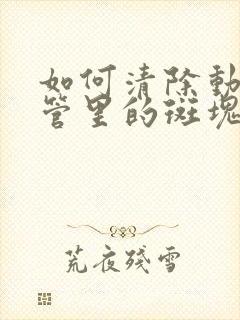 如何清除動
管里的斑塊
荒夜殘雪